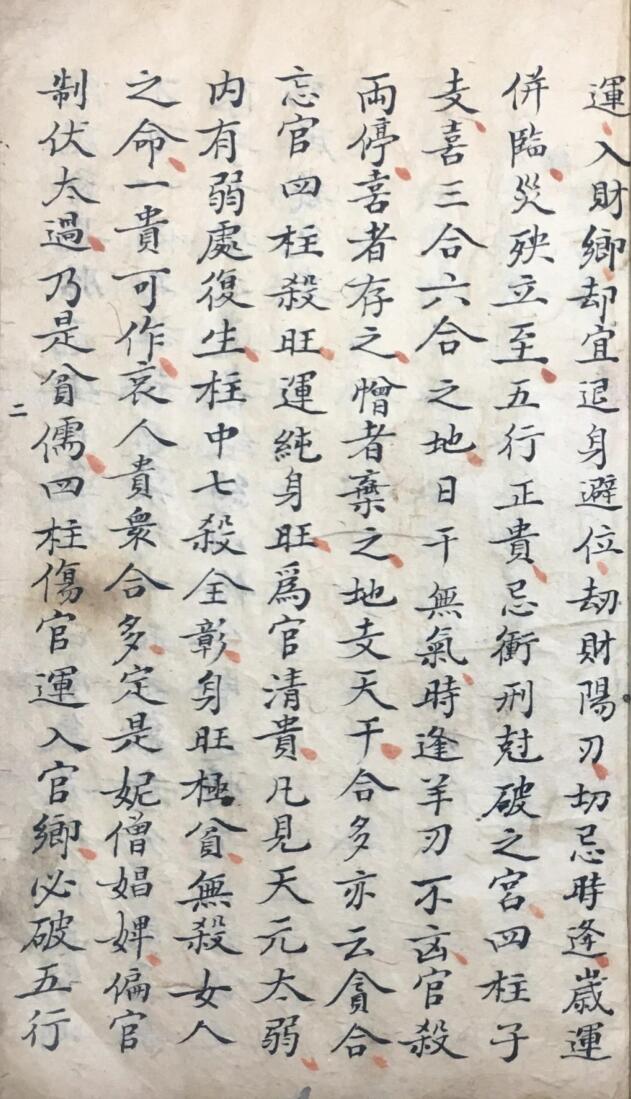 運入財鄉却宜退身避位劫財陽刃切忌時逢歲運
併臨災殃立至五行正貴忌衝刑尅破之宮四柱子
支喜三合六合之地日干無氣時逢羊刃不凶官殺
両停喜者存之憎者棄之地支天干合多亦云貪合
忘官四柱殺旺運純身旺爲官清貴凡見天元太弱
内有弱處復生柱中七殺全彰身旺極貧無殺女人
之命一貴可作衮人貴衆合多定是妮僧娼婢偏官
制伏太過乃是貧儒四柱傷官運入官鄉必破五行
二